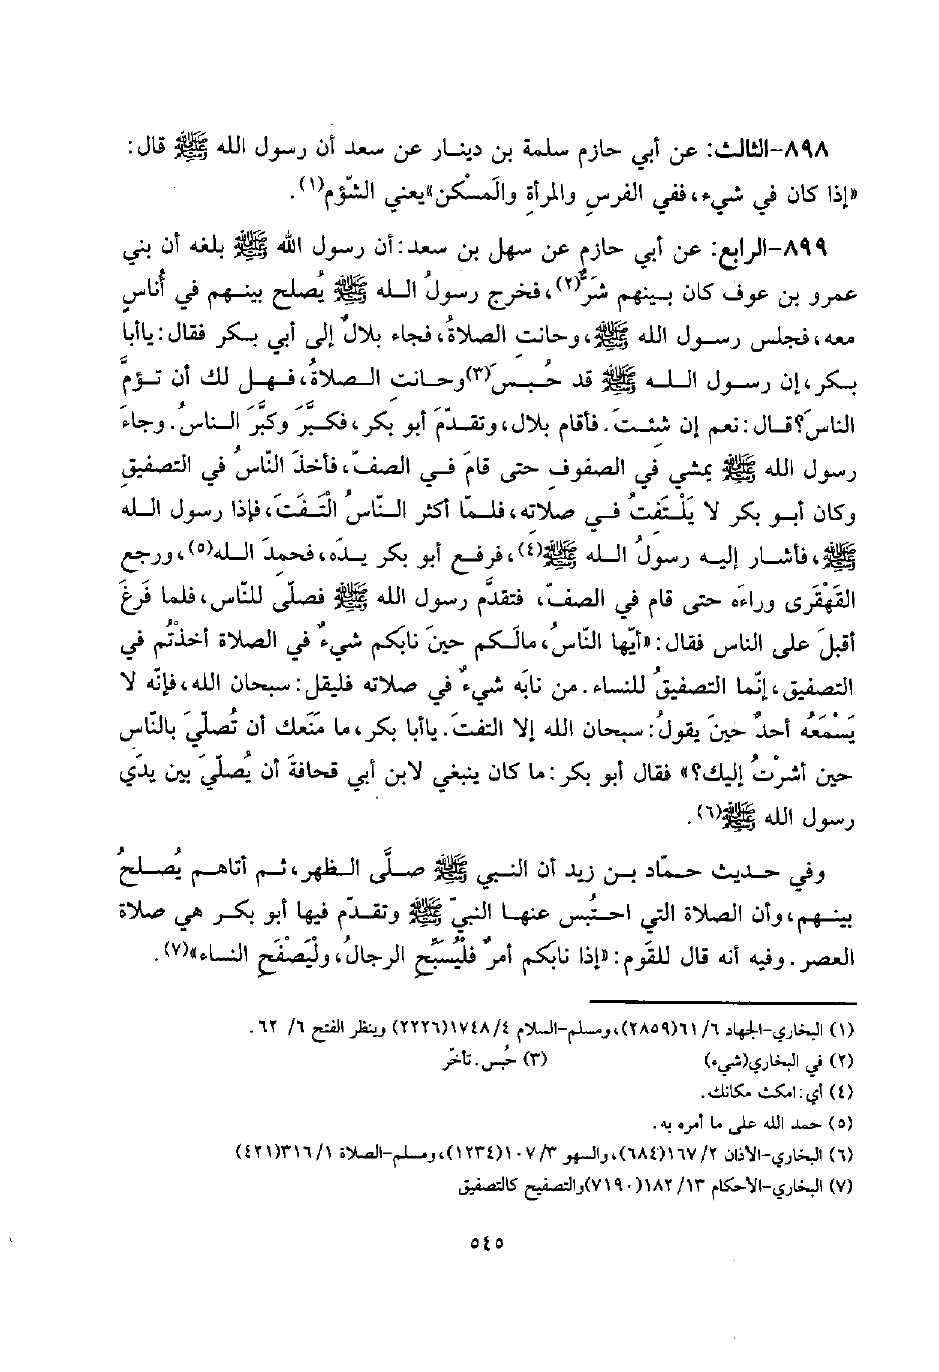 ٨٩٨-الثالث: عن أبي حازم سلمة بن دينار عن سعد أن رسول الله ﷺ قال:
«إذا كان في شيء، ففي الفرسِ والمرأة والَمسْكن»يعني الشّؤم(١).
٨٩٩-الرابع: عن أبي حازم عن سهل بن سعد: أن رسول الله ﷺ بلغه أن بني
عمرو بن عوف كان بينهم شَرٌّ(٢)، فخرج رسولُ الله ﷺ يُصلح بينهم في أُناسٍ
معه، فجلس رسول الله ﷺ، وحانت الصلاةُ، فجاء بلالٌ إلى أبي بكر فقال: ياأبا
بكر، إن رسول الله ﷺ قد حُبِس(٣)وحانت الصلاةُ، فهل لك أن تؤمَّ
الناسَ؟قال: نعم إن شئتَ. فأقام بلال، وتقدّمَ أبو بكر، فكبَّرَ وكبَّرَ الناسُ. وجاءَ
رسول الله ﷺ يمشي في الصفوف حتى قامَ في الصفّ، فأخذَ النّاسُ في التصفيق
وكان أبو بكر لا يَلْتَفتُ في صلاته، فلمّا أكثر الناسُ الْتَفَتَ، فإذا رسول الله
ﷺ، فأشار إليه رسولُ الله ﷺ(٤)، فرفع أبو بكر يدَه، فحمدَ الله(٥)، ورجع
القَهْقرى وراءَه حتى قام في الصفّ، فتقدَّم رسول الله ﷺ فصلّى للنّاس، فلما فَرغَ
أقبلَ على الناس فقال: «أيّها النّاسُ، مالَكم حينَ نابَكم شيءٌ في الصلاة أخذْتُم في
التصفيق، إنّما التصفيقُ للنساء. من نابَه شيءٌ في صلاته فليقل: سبحان الله، فإنّه لا
يَسْمَعُه أحدٌ حينَ يقولُ: سبحان الله إلا التفتَ. ياأبا بكر، ما مَنَعك أن تُصلّيَ بالنّاس
حين أشرْتُ إليك؟» فقال أبو بكر: ما كان ينبغي لابن أبي قحافةَ أن يُصلّيَ بين يدَي
رسول الله ﷺ(٦).
وفي حديث حمّاد بن زيد أن النبي ﷺ صلَّى الظهر، ثم أتاهم يُصلحُ
بينهم، وأن الصلاة التي احتُبس عنها النبيّ ﷺ وتقدّم فيها أبو بكر هي صلاة
العصر. وفيه أنه قال للقوم: «إذا نابَكم أمرٌ فلْيُسَبِّح الرجالُ، ولْيَصْفَح النساء»(٧).
(١) البخاري-الجهاد ٦/ ٦١(٢٨٥٩)، ومسلم-السلام ٤/ ١٧٤٨(٢٢٢٦) وينظر الفتح ٦/ ٦٢.
(٢) في البخاري(شيء) (٣) حُبس. تأخّر
(٤) أي: امكث مكانك.
(٥) حمد الله على ما أمره به.
(٦) البخاري-الأذان ٢/ ١٦٧(٦٨٤)، والسهو ٣/ ١٠٧(١٢٣٤)، ومسلم-الصلاة ١/ ٣١٦(٤٢١)
(٧) البخاري-الأحكام ١٣/ ١٨٢(٧١٩٠)والتصفيح كالتصفيق
٥٤٥